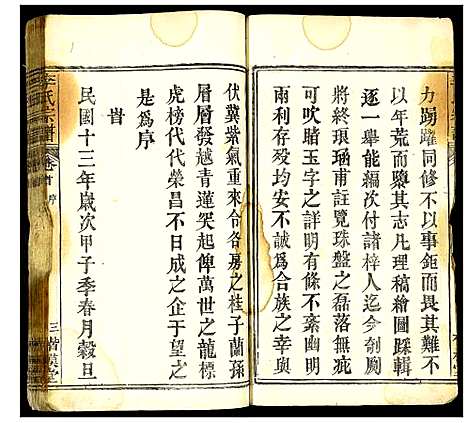 力踴躍同修不以事鉅而畏其難不
以年荒而隳其志凡理稿繪圖踩輯
逐一舉能編次付諸梓人迄今剞劂
將終琅函甫註覽珠盤之磊落無疵
可吹睹玉字之詳明有條不紊幽明
兩利存歿均安不誠為合族之幸與
伏冀紫氣重來令各房之桂子蘭孫
層層發越青蓮突起俾萬世之龍標
虎榜代代榮昌不日成之企于望之
是為序
旹
民國十三年歲次甲子季春月穀旦
李氏宗譜 卷首 序